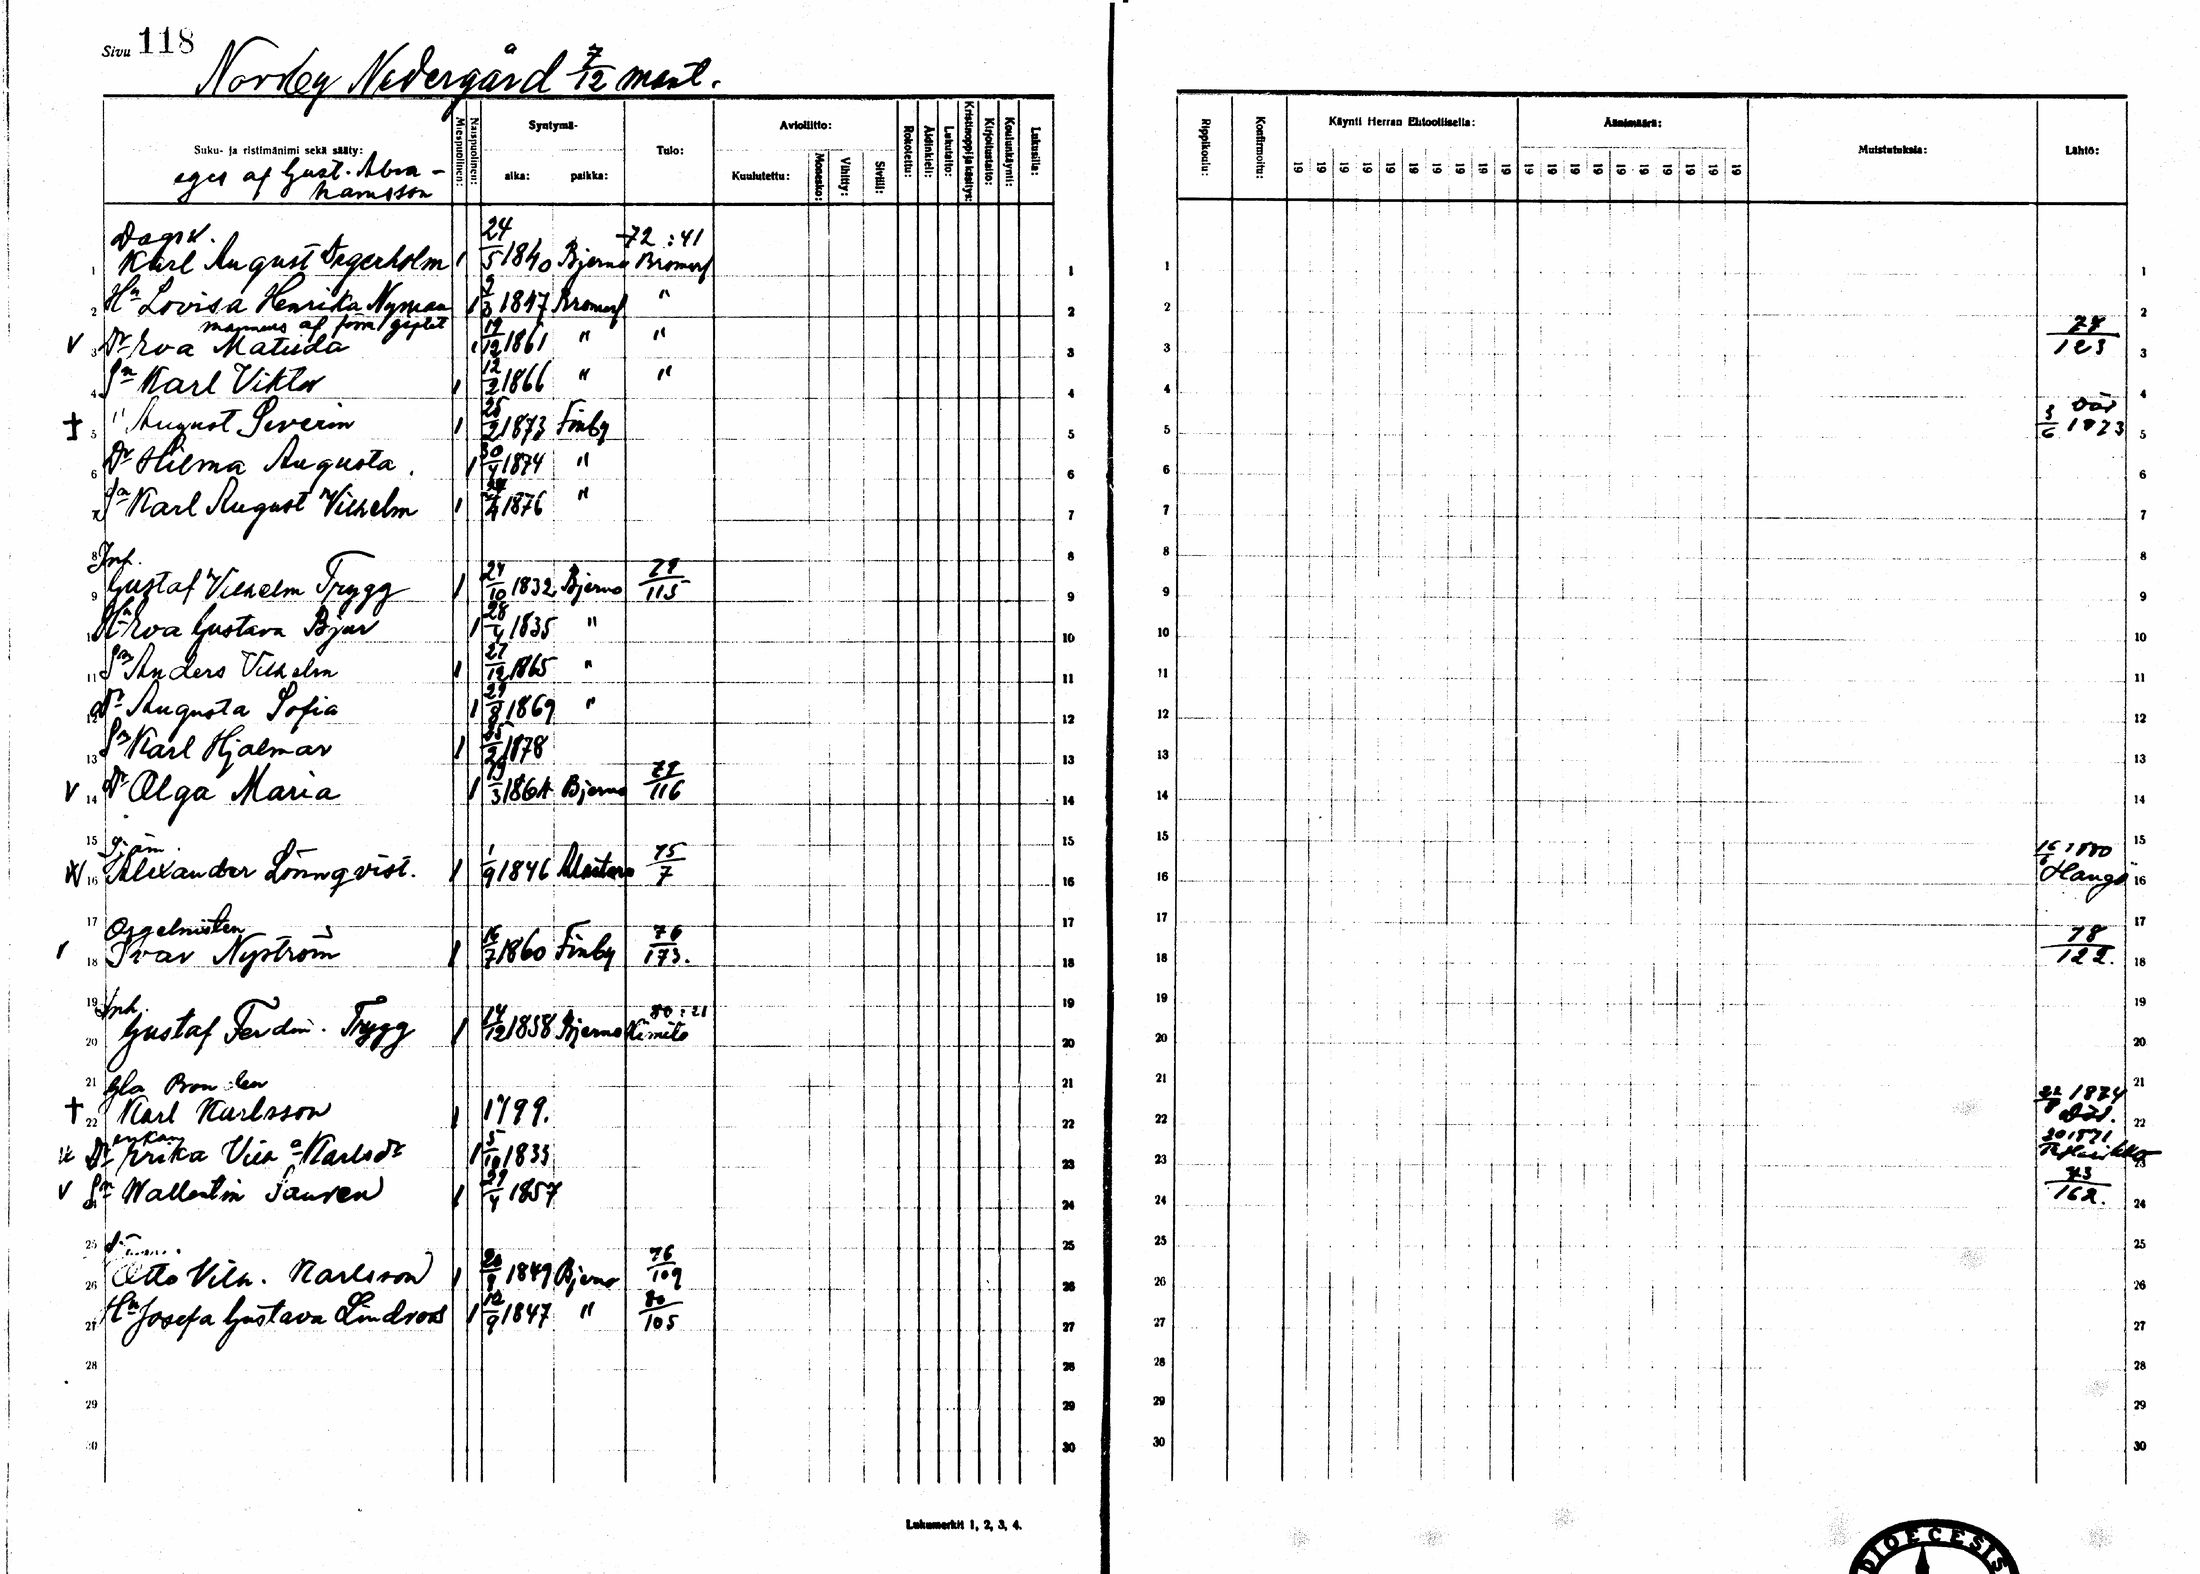 Sivu 118
Norrby Nedergård 7/12 mant.
Suku- ja ristimänimi sekä sääty:
eges af Gust. Abra-
hamsson
Miespuolinen: Naispuolinen: Syntymä- aika: paikka: Tulo: Avioliitto: Kuulutettu: Monesko: Vihitty: Siviili: Rokotettu: Äidinkieli: Lukutaito: Kristinoppi ja käsitys: Kirjoitustaito: Koulunkäynti: Lukusilla:
Rippikoulu: Konfirmoitu: Käynti Herran Ehtoollisella: 19 19 19 19 19 19 19 19 19 19 Äänimäärä: 19 19 19 19 19 19 19 19 19 19 Muistutuksia: Lähtö:
72 : 41
1 Karl August Segerholm 1 24/5 1840 Bjerno Bromarf 1
2 Hn Lovisa Henrika Nyman 1 2/3 1847 Bromarf " 2
mannens af förra giftet
V 3 Dr Eva Matilda 1 19/12 1861 " " 3 78/123
4 Sn Karl Viktor 1 12/2 1866 " " 4
† 5 " August Severin 1 25/2 1873 Finby 5 3/6 1873 Död
6 Dr Hilma Augusta. 1 30/4 1874 " 6
7 Sn Karl August Vilhelm 1 1876 " 7
8 Inh. 8
9 Gustaf Vilhelm Trygg 1 24/10 1832 Bjerno 79/115 9
10 Hn Eva Gustava Bjur 1 28/4 1835 " 10
11 Sn Anders Vilhelm 1 27/12 1865 " 11
12 Dr Augusta Sofia 1 29/8 1869 " 12
13 Sn Karl Hjalmar 1 25/2 1878 13
V 14 Dr Olga Maria 1 19/3 1864 Bjerno 79/116 14
15 15
16 Alexander Lönnqvist. 1 1/9 1846 Alastaro 75/7 16 Hangö
17 Orgelnisten 17
18 Ivar Nyström 1 16/7 1860 Finby 76/173. 18 78/122.
19 Inh. 80 : 21 19
20 Gustaf Ferdin. Trygg 1 14/12 1858 Bjerno Kimito 20
21 Gla 21
† 22 Karl Karlsson 1 1799. 22 1874 Död.
enkan
Dr Erika Vilh-a Karlsdr 1 5/10 1833 23
V Sn Wallentin 1 29/4 1857 24 73/162.
25 25
26 Otto Vilh. Karlsson 1 20/8 1849 Bjerno 76/109 26
27 Hn Josefa Gustava Lindroos 1 12/9 1847 " 80/105 27
28 28
29 29
30 30
Lukumerkit 1, 2, 3, 4.
DIOECESIS